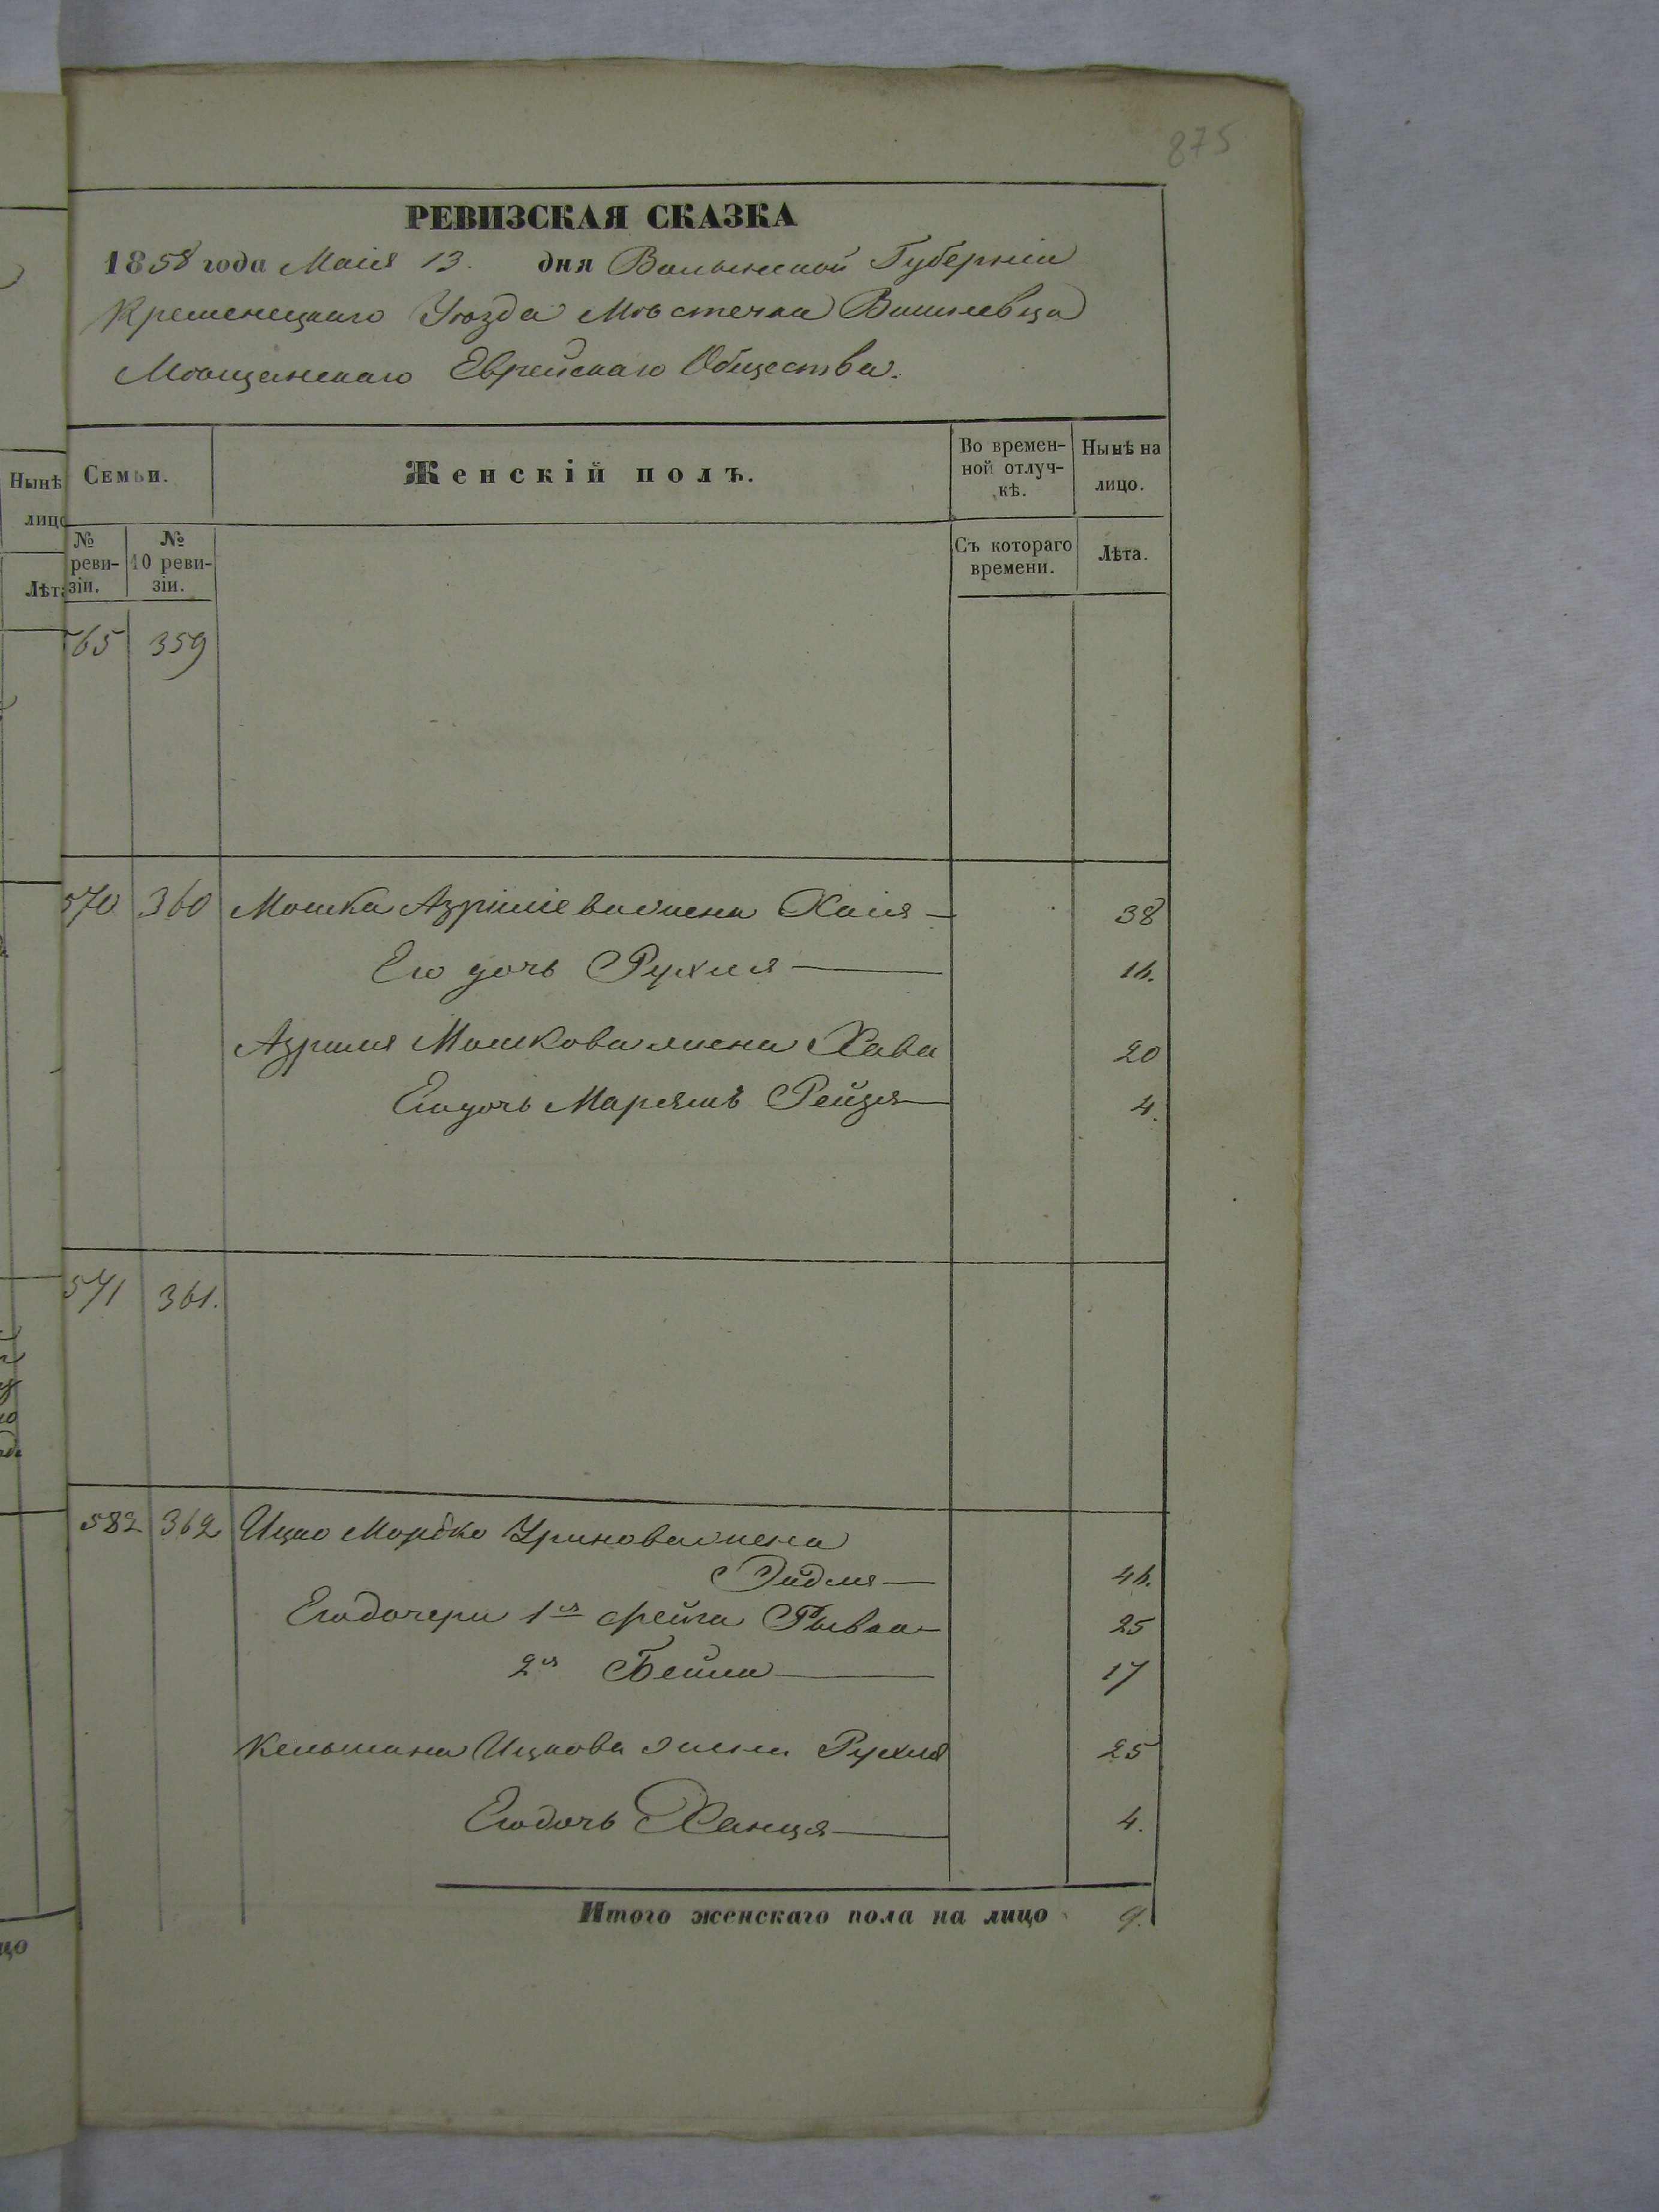 875
РЕВИЗСКАЯ СКАЗКА
1858 года Маія 13. дня Волынской Губерніи
Кременецкаго Уѣзда Мѣстечка Вишневца
Мѣщанскаго Еврейскаго Общества.
Нынѣ
лицо
Лѣта
Семьи.
Женскій полъ.
Во времен-
ной отлуч-
кѣ.
Нынѣ на
лицо.
№
реви-
зіи.
№
10 реви-
зіи.
Съ котораго
времени.
Лѣта.
565 359
570 360 Мошка Азриліева жена Хаия 38
Его дочь Рухля 16.
Азриля Мошкова жена Хава 20
Его дочь Марьямъ Рейзя 4.
571 361.
582 362 Ицко Мордко Уринова жена
Эйдля 46.
Его дочери 1я Фейга Рывка 25
2я Бейла 17
Кельмана Ицкова жена Рухля 25
Его дочь Ханця 4.
Итого женскаго пола на лицо 9.
цо